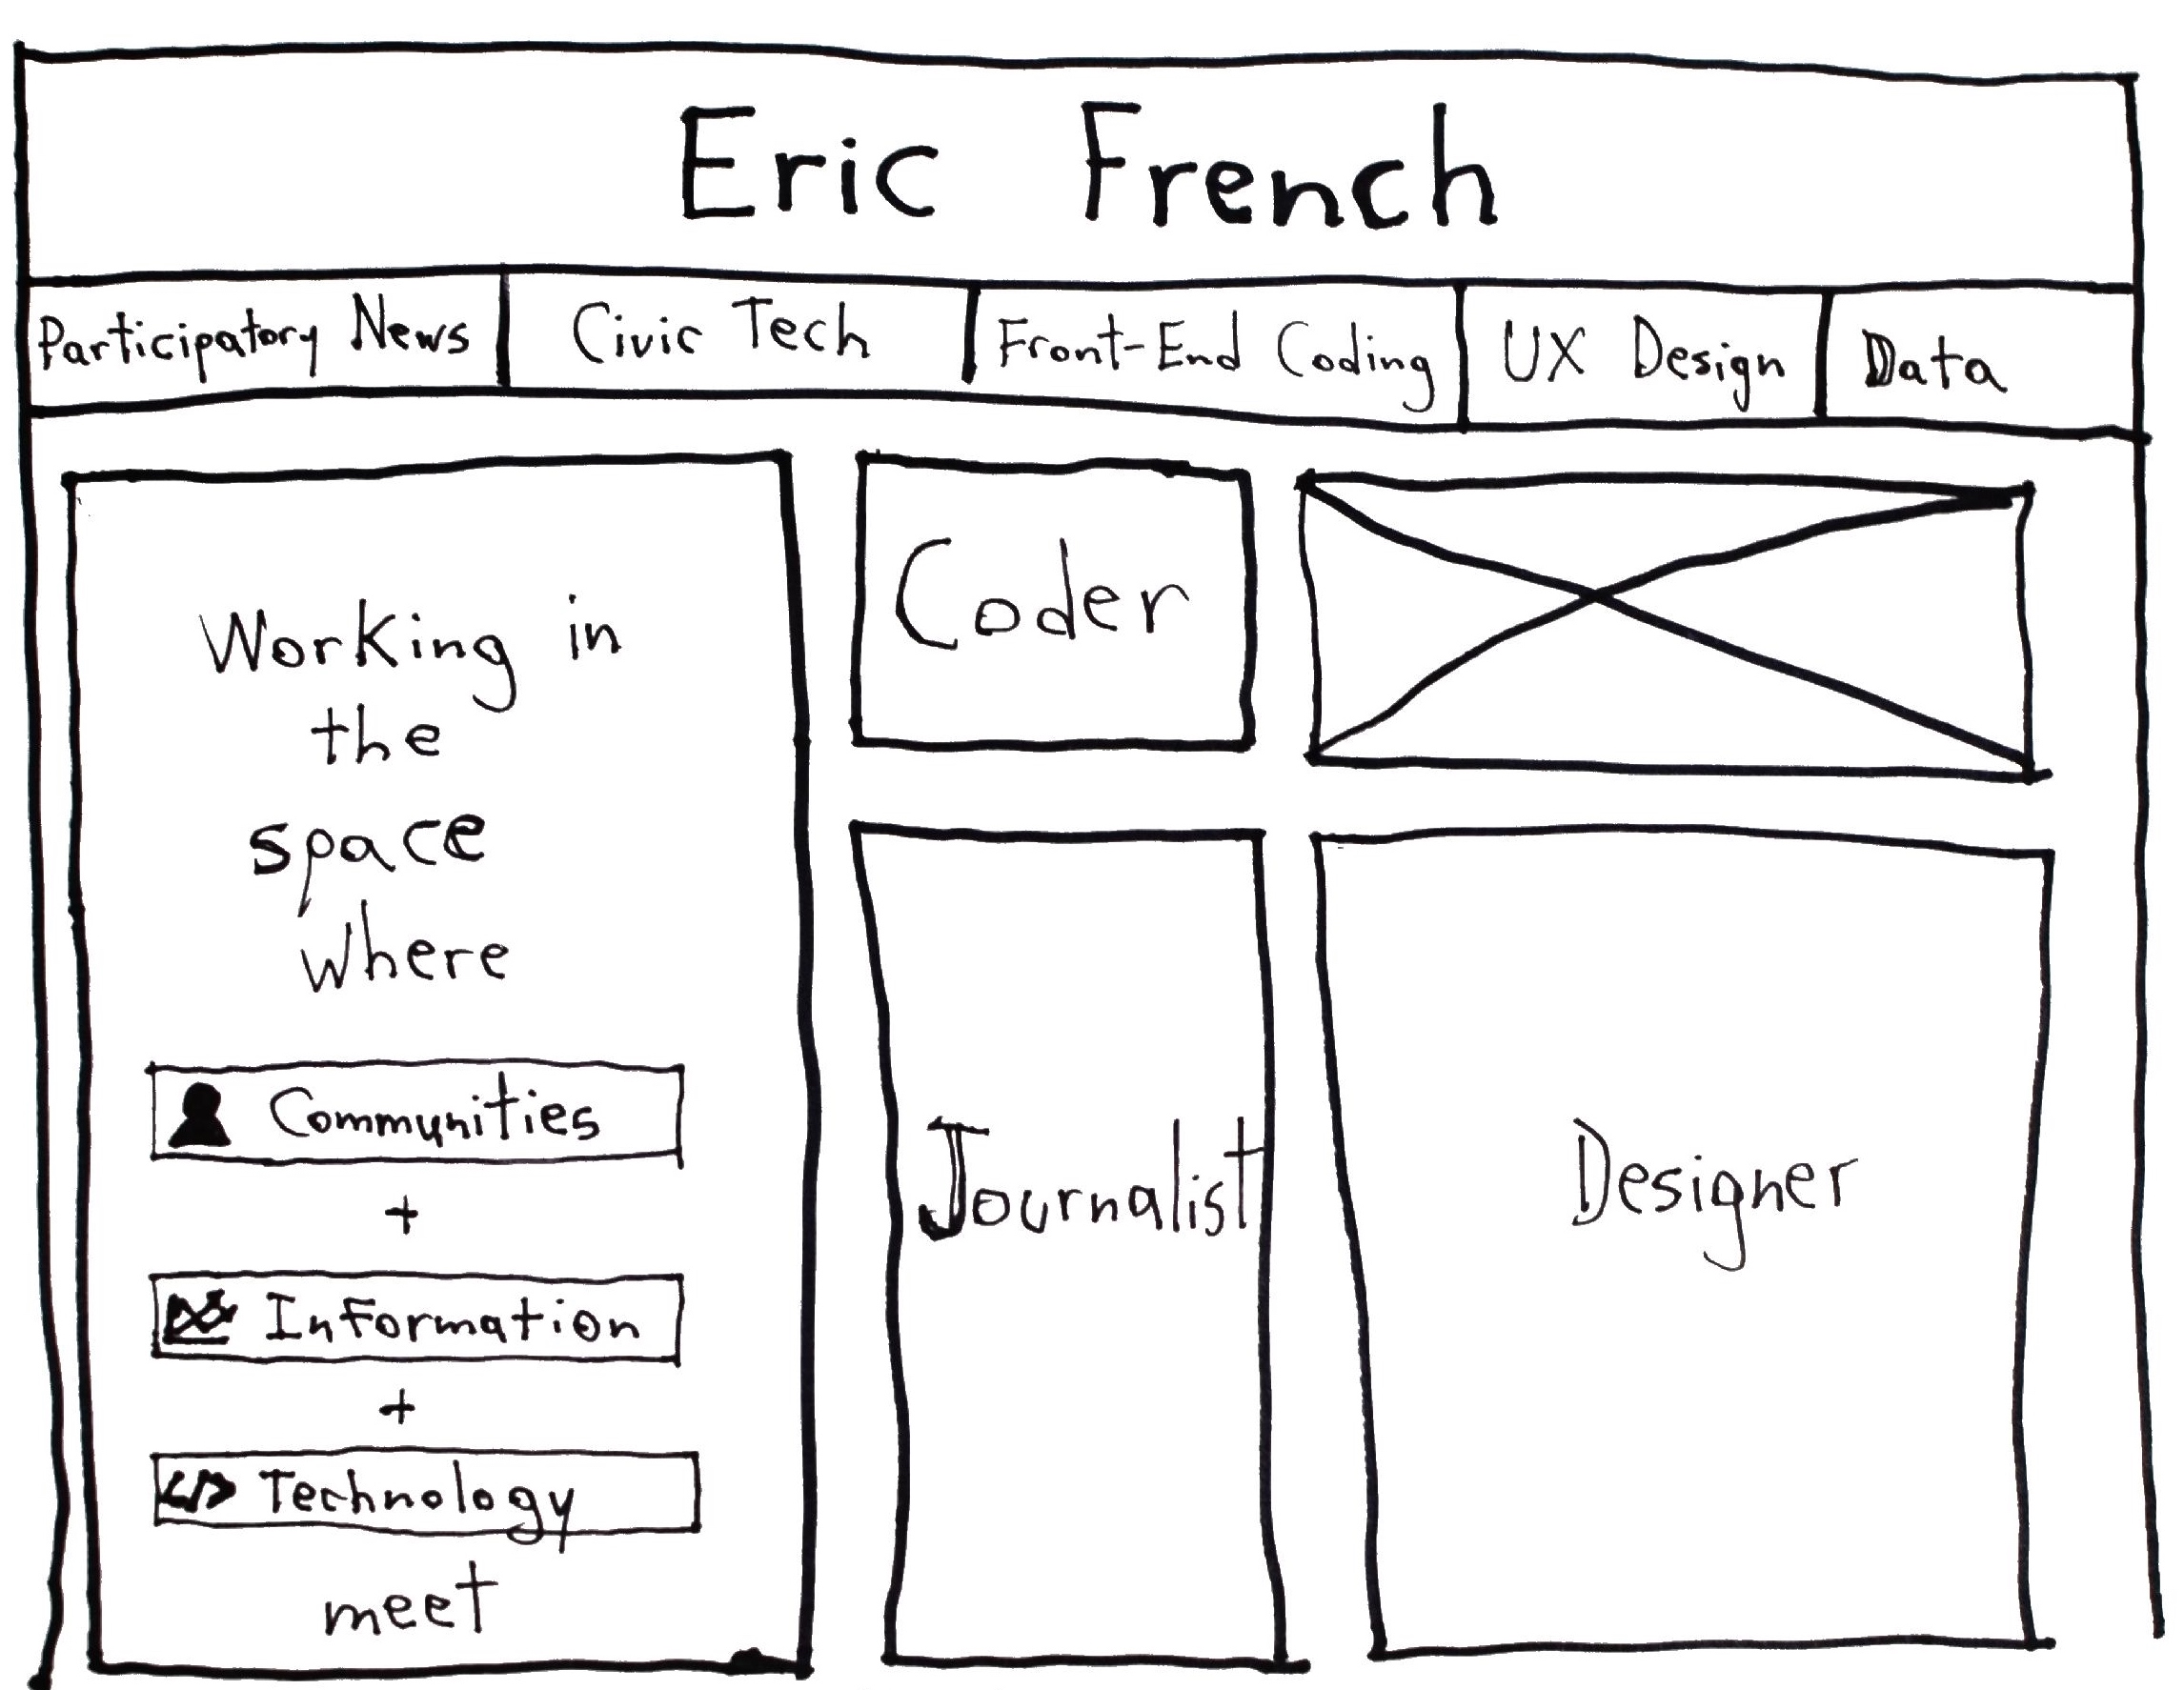 Eric French
Participatory News
Civic Tech
Front-End Coding
UX Design
Data
Working in
the
space
where
Communities
+
Information
+
</> Technology
meet
Coder
Journalist
Designer